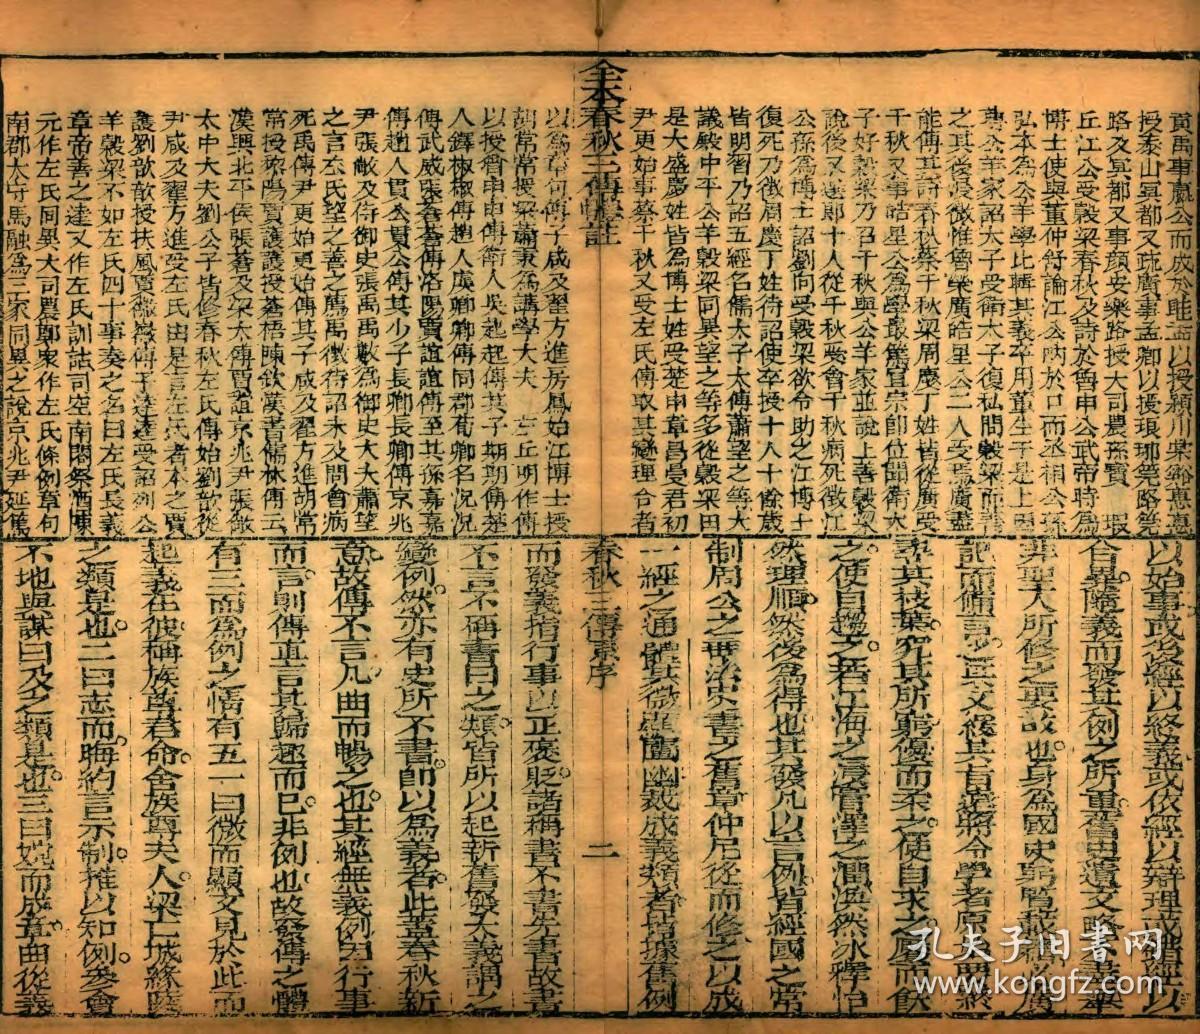 貢禹事嬴公而成於眭孟以授潁川堂谿惠惠
授泰山冥都又疏廣事孟卿以授琅琊筦路筦
路及冥都又事顔安樂路授大司農孫寶 瑕
丘江公受穀梁春秋及詩於魯申公武帝時為
博士使與董仲舒論江公吶於口而丞相公孫
弘本為公羊學比輯其義卒用董生于是上因
尊公羊家詔太子受衛太子復私問穀梁而善
之其後浸微惟魯榮廣皓星公二人受焉廣盡
能傳其詩春秋蔡千秋梁周慶丁姓皆從廣受
千秋又事皓星公為學最篤宣宗即位聞衛太
子好穀梁乃召千秋與公羊家並說上善穀梁
說後又選郎十人從千秋受會千秋病死徵江
公孫為博士詔劉向受穀梁欲令助之江博士
復死乃徵周慶丁姓待詔使卒授十人十餘歲
皆明習乃詔五經名儒太子太傅蕭望之等大
議殿中平公羊穀梁同異望之等多從穀梁由
是大盛慶姓皆為博士姓受楚申章昌曼君初
尹更始事蔡千秋又受左氏傳取其變理合者
以為章句傳子咸及翟方進房鳳始江博士授
胡常常授梁蕭秉為講學大夫 左丘明作傳
以授曾申申傳衛人吳起起傳其子期期傳楚
人鐸椒椒傳趙人虞卿卿傳同郡荀卿名況況
傳武威張蒼蒼傳洛陽賈誼誼傳至其孫嘉嘉
傳趙人貫公貫公傳其少子長卿長卿傳京兆
尹張敞及侍御史張禹禹數為御史大夫蕭望
之言左氏望之善之薦禹徵待詔未及問會病
死禹傳尹更始更始傳其子咸及翟方進胡常
常授黎陽賈護護授蒼梧陳欽漢書儒林傳云
漢興北平侯張蒼及梁太傅賈誼京兆尹張敞
太中大夫劉公子皆修春秋左氏傳始劉歆從
尹咸及翟方進受左氏由是言左氏者本之賈
護劉歆歆授扶風賈徽徽傳子逵逵受詔列公
羊穀梁不如左氏四十事奏之名曰左氏長義
章帝善之逵又作左氏訓詁司空南閣祭酒陳
元作左氏同異大司農鄭衆作左氏條例章句
南郡太守馬融為三家同異之說京兆尹延篤
全本春秋三傳體註
春秋三傳原序
二
以始事或後經以終義或依經以辯理或錯經以
合異隨義而發其例之所重舊史遺文略不盡舉
非聖人所修之要故也身為國史躬覽載籍必廣
記而備言之其文緩其旨遠將令學者原始要終
尋其枝葉究其所窮優而柔之使自求之饜而飫
之使自趨之若江海之浸膏澤之潤渙然冰釋怡
然理順然後為得也其發凡以言例皆經國之常
制周公之垂法史書之舊章仲尼從而修之以成
一經之通體其微顯闡幽裁成義類者皆據舊例
而發義指行事以正褒貶諸稱書不書先書故書
不言不稱書曰之類皆所以起新舊發大義謂之
變例然亦有史所不書即以為義者此蓋春秋新
意故傳不言凡曲而暢之也其經無義例因行事
而言則傳直言其歸趣而已非例也故發傳之體
有三而為例之情有五一曰微而顯文見於此而
起義在彼稱族尊君命舍族尊夫人梁亡城緣陵
之類是也二曰志而晦約言示制推以知例參會
不地與謀曰及之類是也三曰婉而成章曲從義
孔夫子旧书网
www.kongfz.com